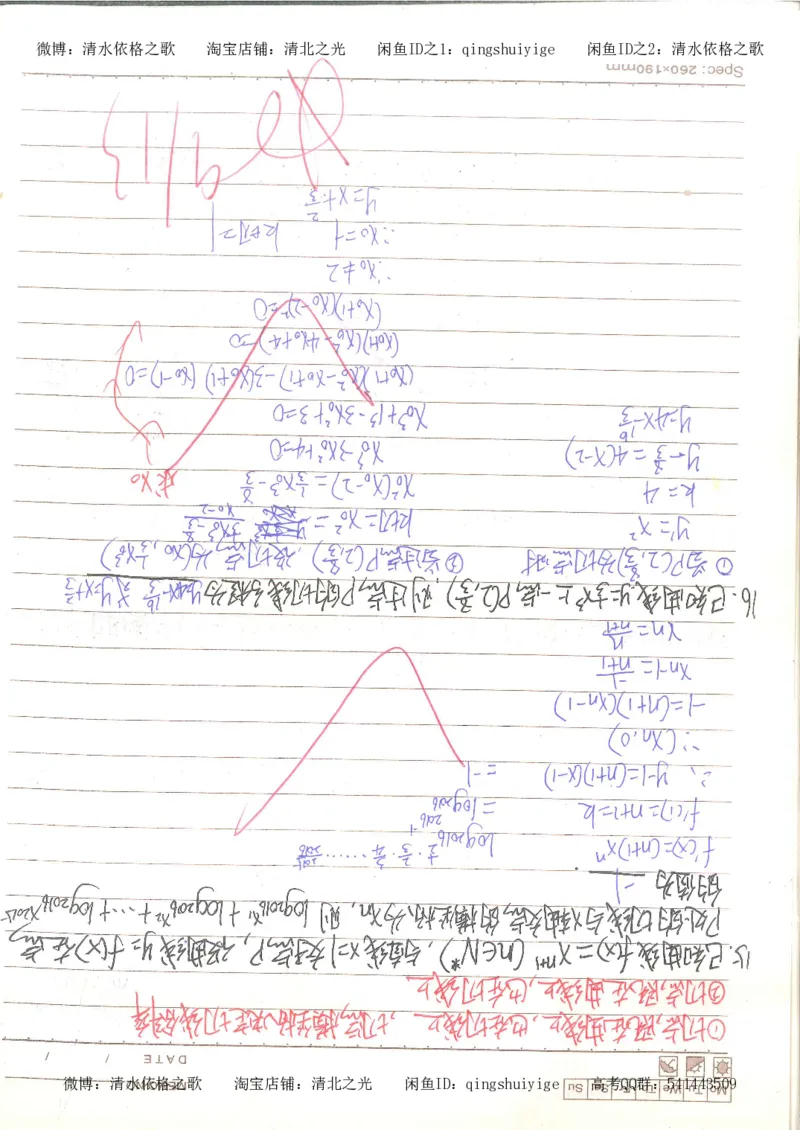 微博：清水依格之歌 淘宝店铺：清北之光 闲鱼ID之1：qingshuiyige 闲鱼ID之2：清水依格之歌
Mo Tu We Th Fr Sa Su
DATE / /
①切点,既在曲线上,也在切线上,切点横坐标决定切线斜率
②切点,既在曲线上,也在切线上
15.已知曲线f(x)=xⁿ⁺¹ (n∈N*),与直线x=1交于点P,设曲线y=f(x)在点
P处的切线与x轴交点的横坐标为xn,则log2016x1+log2016x2+…+log2016x2015
的值为 -1
f'(x)=(n+1)xⁿ
f'(1)=n+1=k
∴ y-1=(n+1)(x-1)
∴(xn,0)
-1=(n+1)(xn-1)
xn-1=-1/(n+1)
xn=n/(n+1)
log2016 1/2·2/3·3/4……2015/2016
=log2016 2016⁻¹
=-1
16.已知曲线y=1/3x³上一点P(2,8/3),则过点P的切线方程为y=4x-16/3或y=x+2/3
①当P(2,8/3)为切点时
y'=x²
k=4
y-8/3=4(x-2)
y=4x-16/3
②当过点P(2,8/3),设切点为(x0,1/3x0³)
k切=x0²=(1/3x0³-8/3)/(x0-2)
x0²(x0-2)=1/3x0³-8/3
x0³-3x0²+4=0
x0³+1³-3x0²+3=0
(x0+1)(x0²-x0+1)-3(x0+1)(x0-1)=0
(x0+1)(x0²-4x0+4)=0
(x0+1)(x0-2)²=0
∴x0≠2
∴x0=-1 k切=1
y=x+2/3
求x0
9/13
Spec: 260×190mm
微博：清水依格之歌 淘宝店铺：清北之光 闲鱼ID：qingshuiyige 高考QQ群：541443509